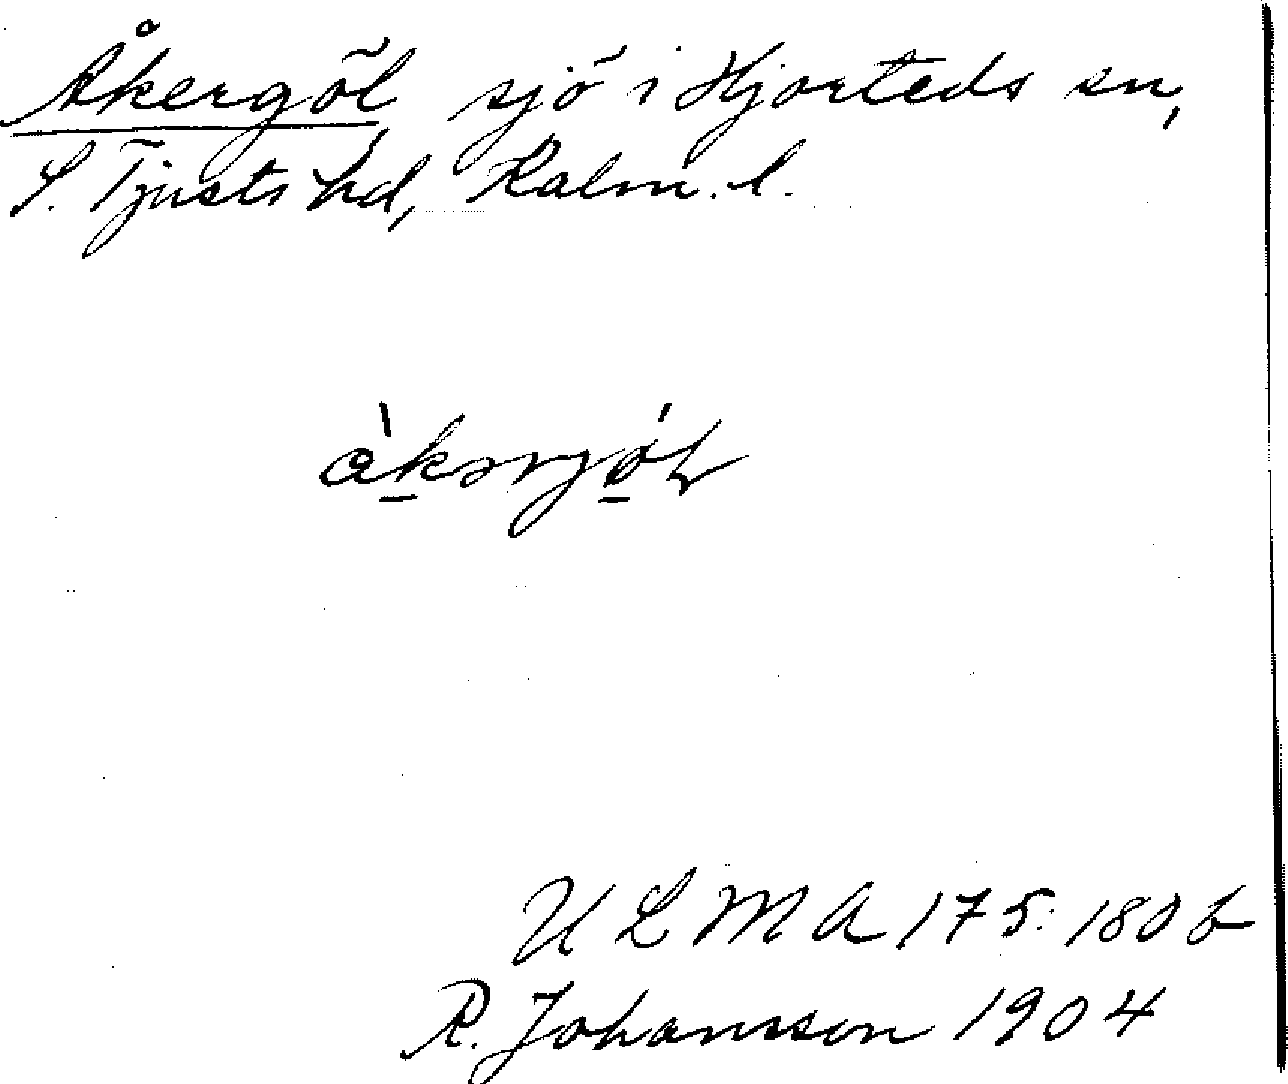 Åkergöl sjö i Hjorteds sn,
S. Tjusts hd, Kalm. l.
ULMA 175:180b
R. Johansson 1904